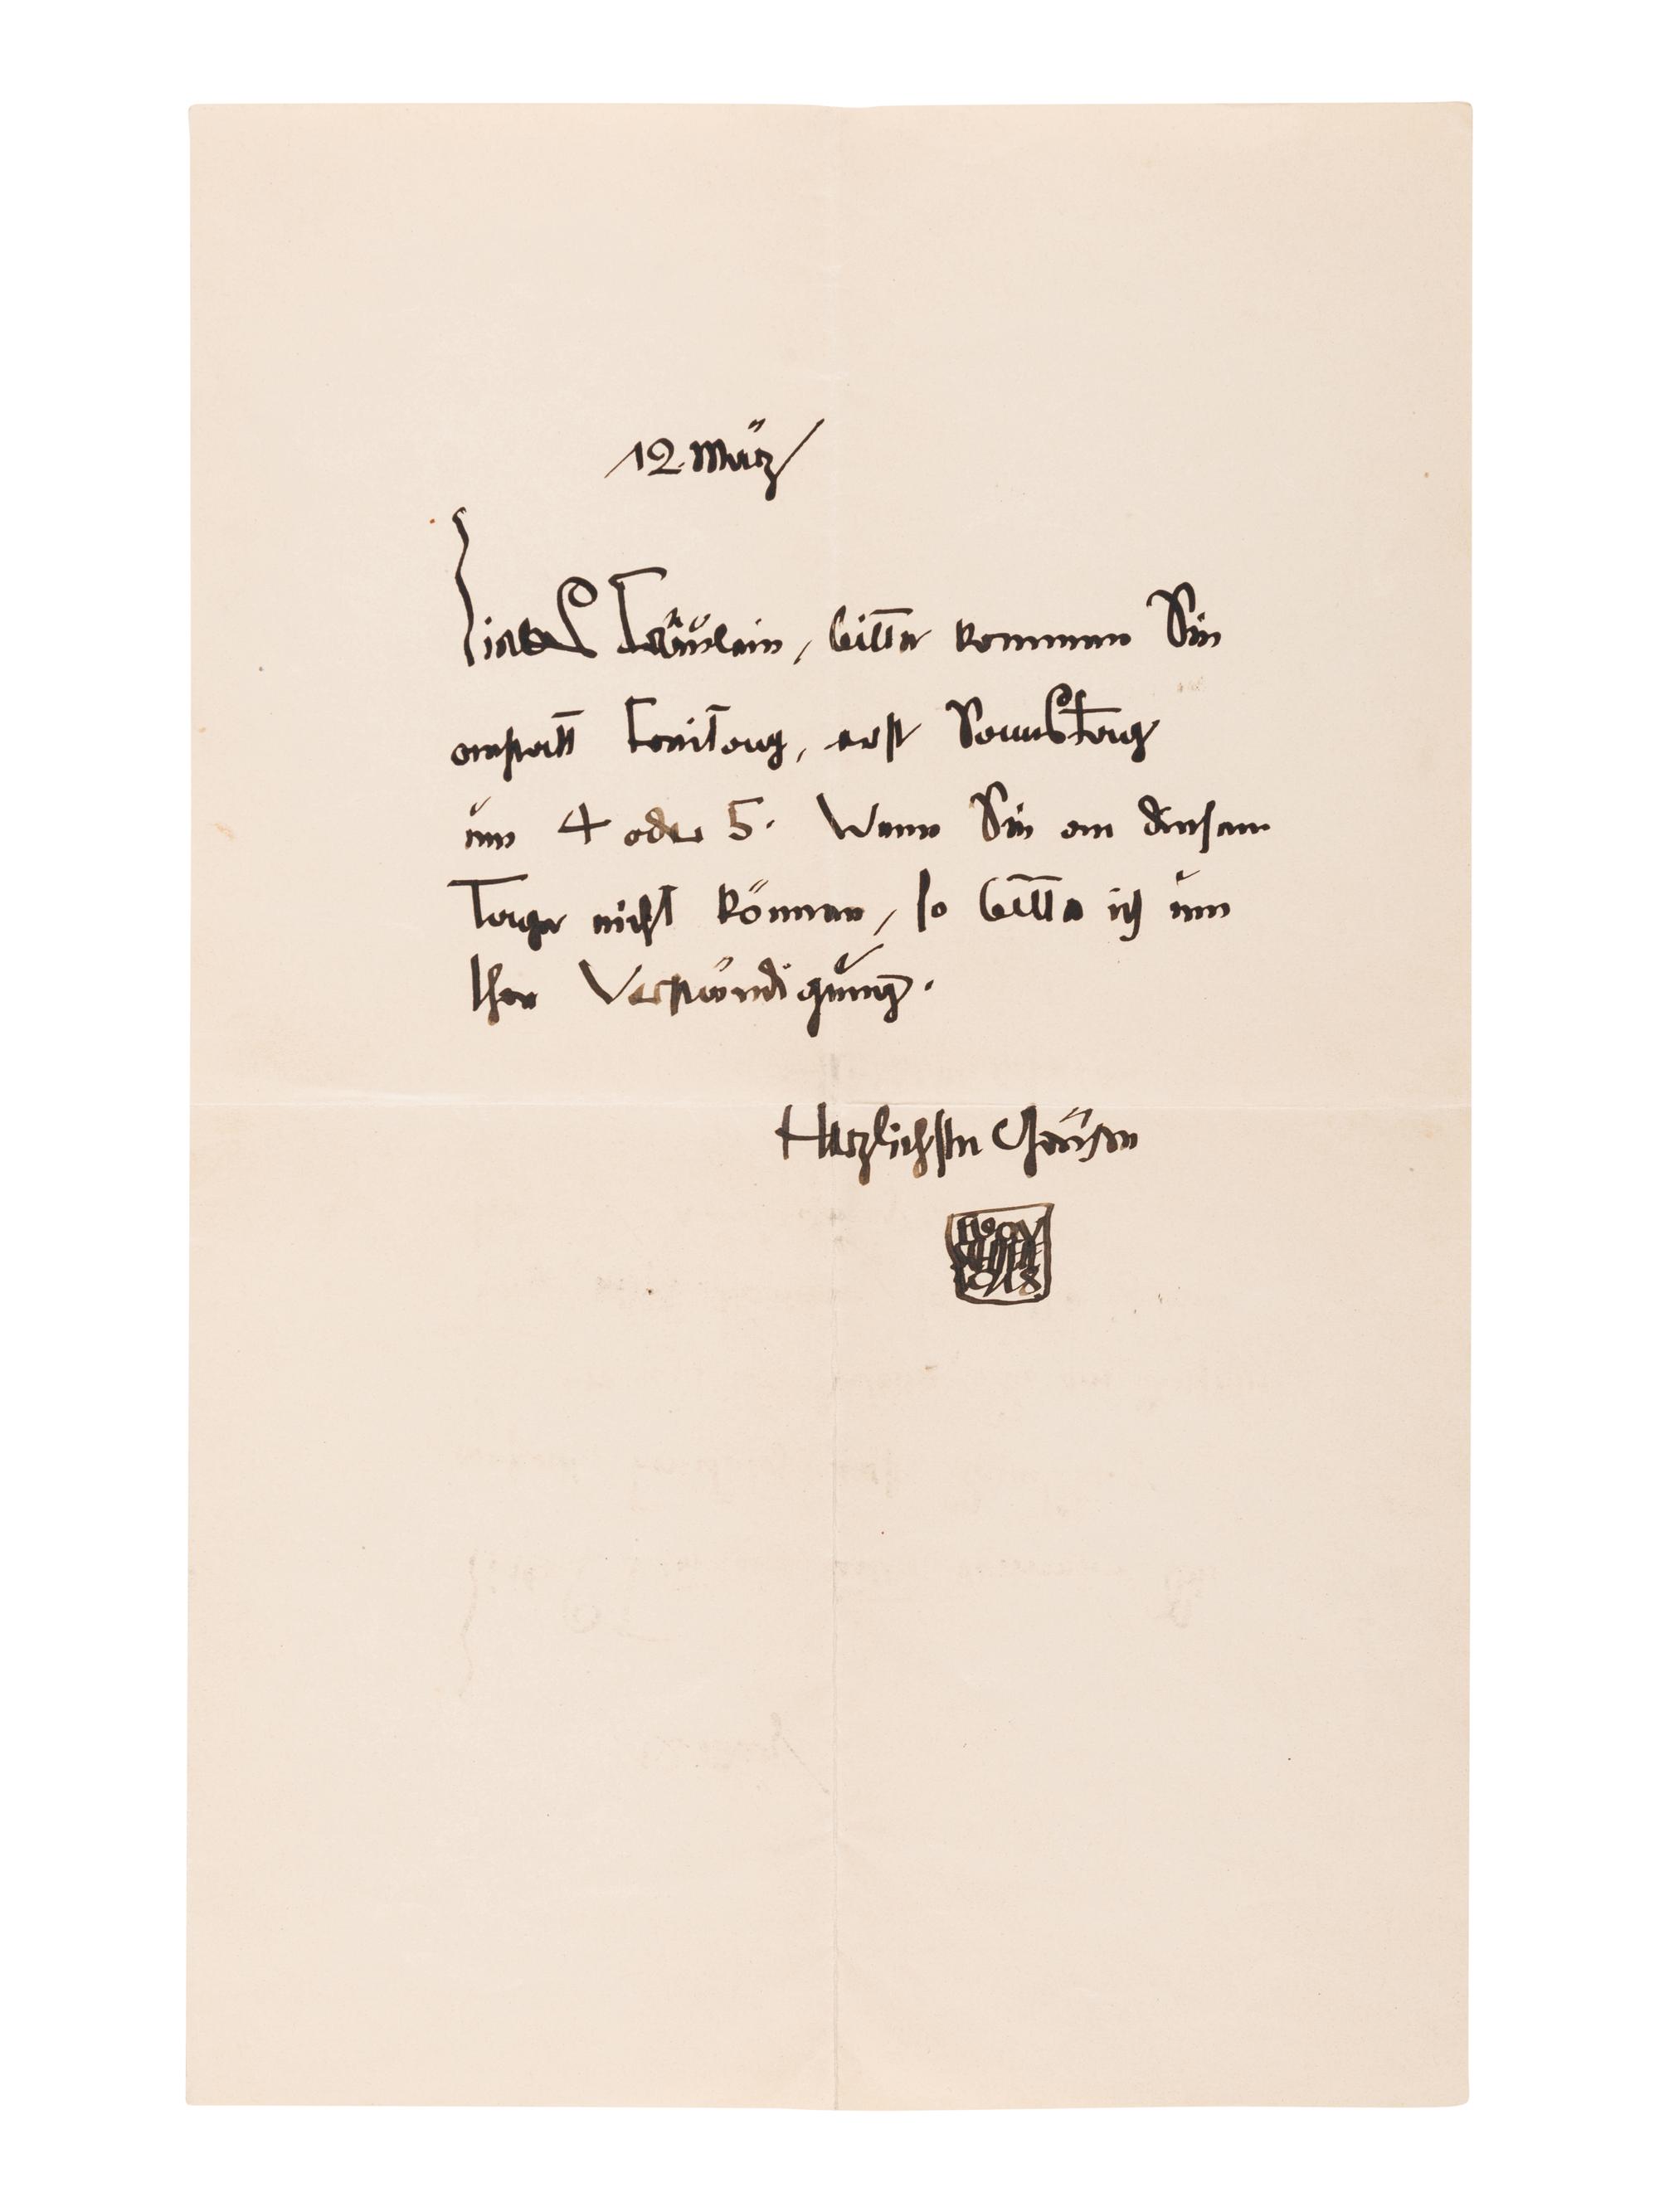 12. März
Liebes Fräulein, bitte kommen Sie
anstatt Freitag, erst Samstag
um 4 oder 5. Wenn Sie an diesem
Tage nicht können, so bitte ich um
Ihre Verständigung.
Herzlichste Grüße
EGON
SCHIELE
1918.